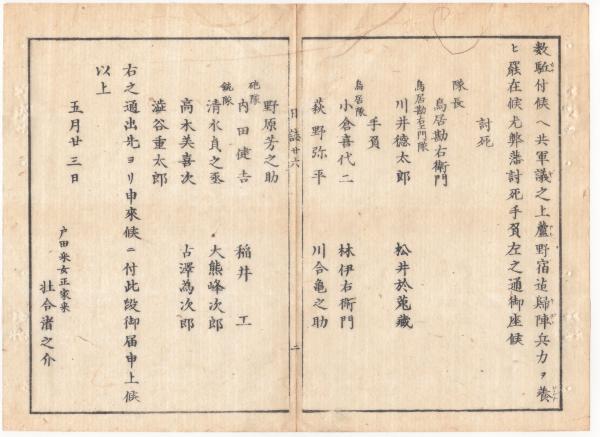 数駈付候ヘ共軍議之上蘆野宿迄歸陣兵力ヲ養
ヒ罷在候尤弊藩討死手負左之通御座候
討死
隊長
鳥居勘右衛門
鳥居勘右エ門隊
川井徳太郎 松井於菟蔵
手負
鳥居隊
小倉喜代二 林伊右衛門
荻野弥平 川合亀之助
日誌廿六 二
野原芳之助
砲隊
内田健吉 稲井工
銃隊
清水貞之丞 大熊峰次郎
高木美喜次 占澤為次郎
澁谷重太郎
右之通出先ヨリ申来候ニ付此段御届申上候
以上
五月廿三日
戸田采女正家来
辻合渚之介